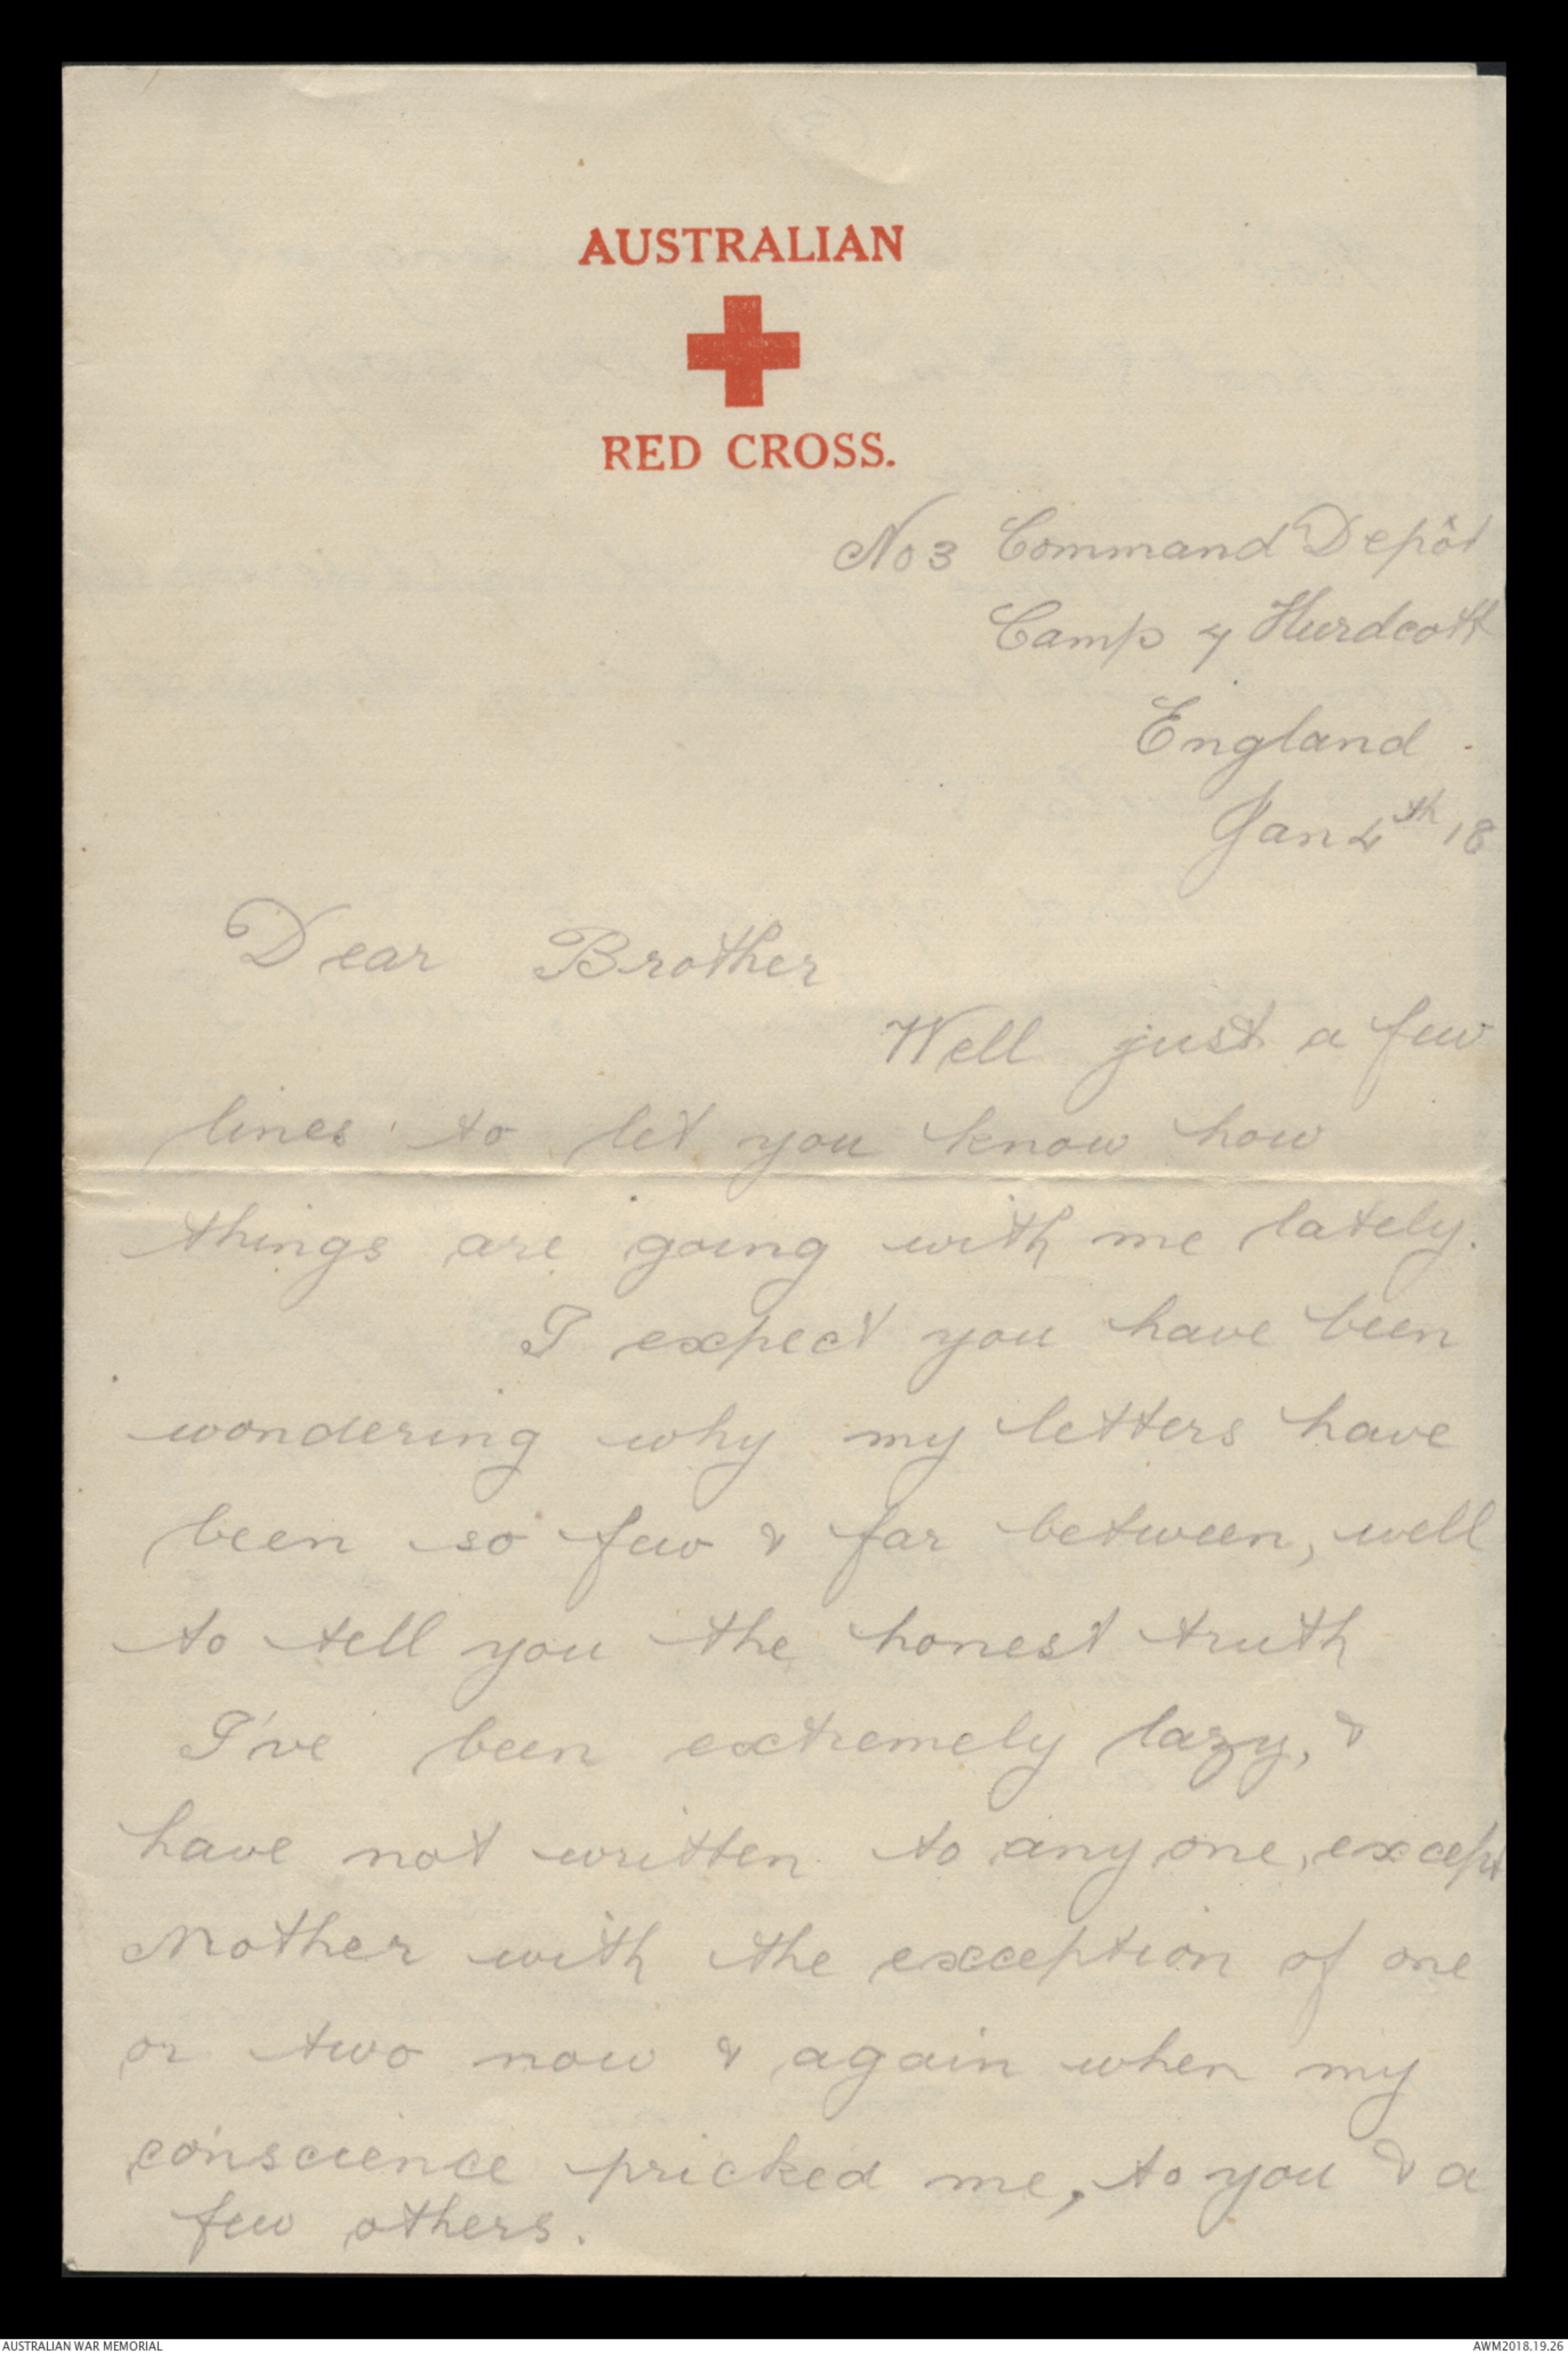 AUSTRALIAN
RED CROSS.
No 3 Command Depôt
Camp 4 Hurdcott
England.
Jan 4th 18
Dear Brother
Well just a few
lines to let you know how
things are going with me lately.
I expect you have been
wondering why my letters have
been so few & far between, well
to tell you the honest truth
I've been extremely lazy, &
have not written to any one, except
Mother with the exception of one
or two now & again when my
conscience pricked me, to you & a
few others.
AUSTRALIAN WAR MEMORIAL
AWM2018.19.26